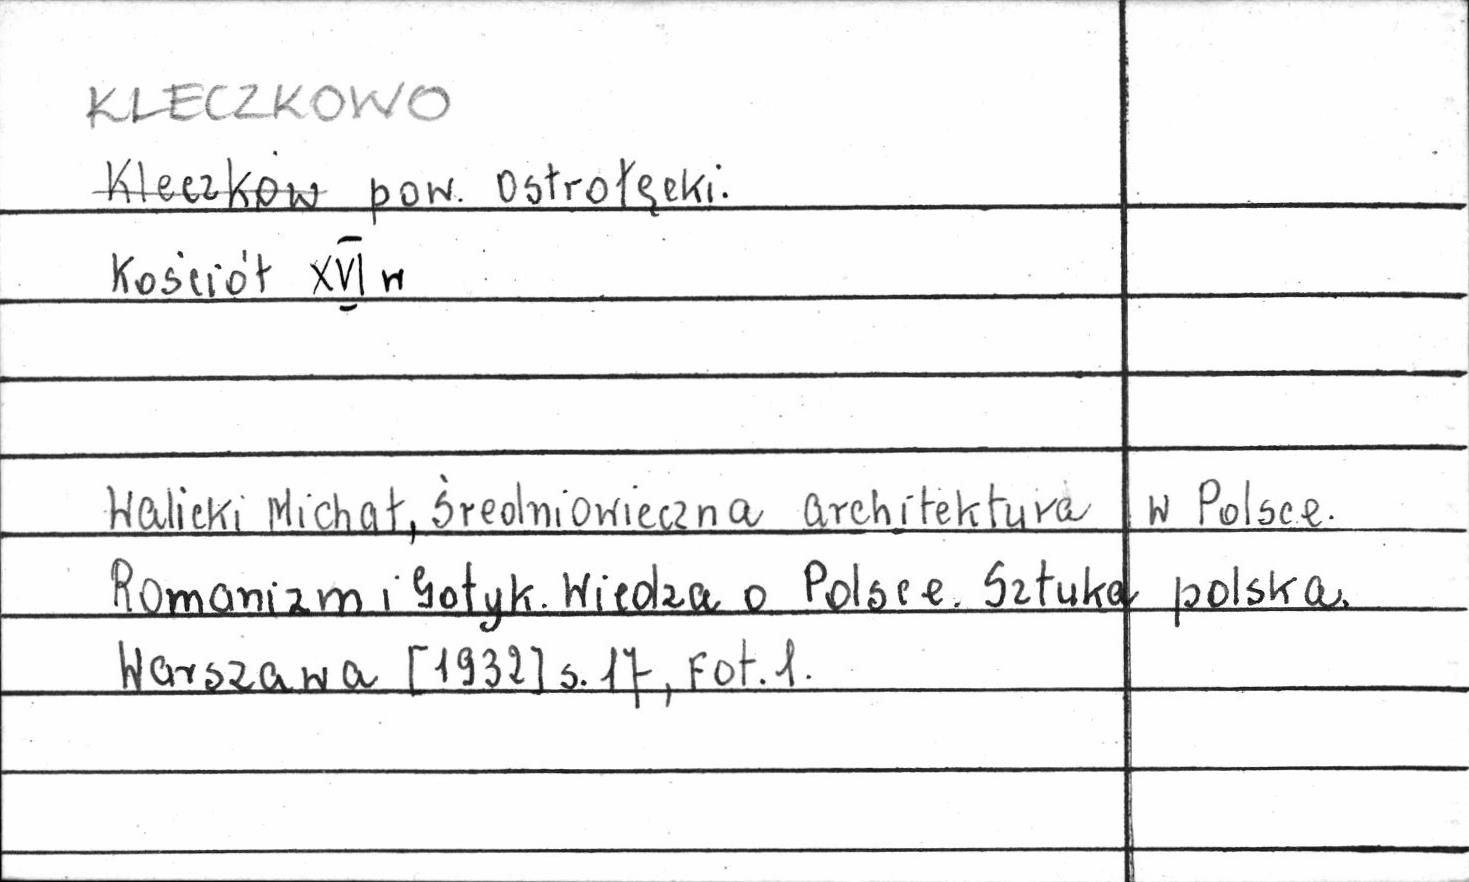 KLECZKOWO
Kleczków pow. Ostrołęcki.
Kościół XVI w
Walicki Michał, Średniowieczna architektura w Polsce.
Romanizm i Gotyk. Wiedza o Polsce. Sztuka polska.
Warszawa [1932] s. 17, Fot. 1.